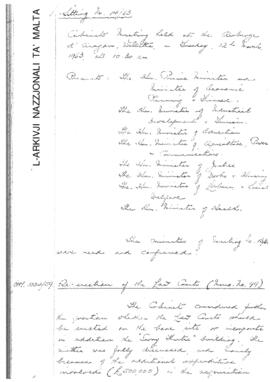 L-ARKIVJI NAZZJONALI TA' MALTA
1. Sitting No. 14/63
Cabinet Meeting held at the Auberge
d'Aragon, Valletta, on Tuesday, 12th March
1963 at 10.30 am
Present: The Hon. Prime Minister and
Minister of Economic
Planning & Finance
The Hon. Minister of Industrial
Development & Tourism
The Hon. Minister of Education
The Hon. Minister of Agriculture, Power
& Communications
The Hon. Minister of Justice
The Hon. Minister of Works & Housing
The Hon. Minister of Labour & Social
Welfare
The Hon. Minister of Health.
The Minutes of
were read and confirmed.
Re-erection of the Law Courts (Memo. No. 44)
The Cabinet considered further
the question whether the Law Courts should
be erected on the same site or
in addition the building. The
matter was fully discussed and
because of the additional expenditure
involved in the